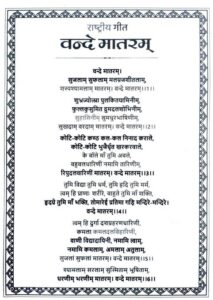 राष्ट्रीय गीत
वन्दे मातरम्
वन्दे मातरम्।
सुजलाम् सुफलाम् मलयजशीतलाम्,
शस्यश्यामलाम् मातरम्। वन्दे मातरम्।।1।।
शुभ्रज्योत्स्ना पुलकितयामिनीम्,
फुल्लकुसुमित द्रुमदलशोभिनीम्,
सुहासिनीम् सुमधुरभाषिणीम्,
सुखदाम् वरदाम् मातरम्। वन्दे मातरम्।।2।।
कोटि-कोटि कण्ठ कल-कल निनाद कराले,
कोटि-कोटि भुजैर्धृत खरकरवाले,
के बोले माँ तुमि अबले,
बहुबलधारिणीं नमामि तारिणीम्,
रिपुदलवारिणीं मातरम्। वन्दे मातरम्।।3।।
तुमि विद्या तुमि धर्म, तुमि हृदि तुमि मर्म,
त्वम् हि प्राणाः शरीरे, बाहुते तुमि माँ शक्ति,
हृदये तुमि माँ भक्ति, तोमारेई प्रतिमा गढ़ि मन्दिरे-मन्दिरे।
वन्दे मातरम्।।4।।
त्वम् हि दुर्गा दशप्रहरणधारिणी,
कमला कमलदलविहारिणी,
वाणी विद्यादायिनी, नमामि त्वाम्,
नमामि कमलाम्, अमलाम्, अतुलाम्,
सुजलां सुफलां मातरम्। वन्दे मातरम्।।5।।
श्यामलाम् सरलाम् सुस्मिताम् भूषिताम्,
धरणीम् भरणीम् मातरम्। वन्दे मातरम्।।6।।